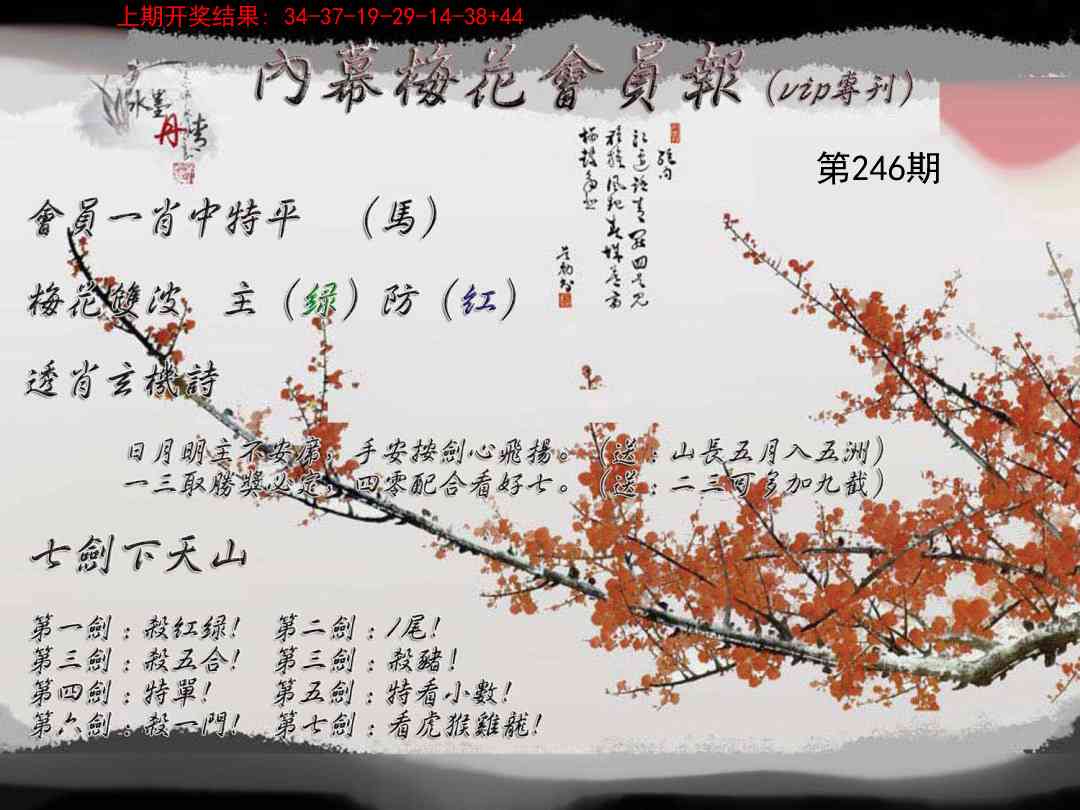 上期开奖结果: 34-37-19-29-14-38+44
內幕梅花會員報（vip專刊）
水墨
丹青
第246期
會員一肖中特平　（馬）
梅花雙波　主（绿）防（红）
透肖玄機詩
日月明主不安席，手安按劍心飛揚。（送：山長五月入五洲）
一三取勝獎必定，四零配合看好七。（送：二三可多加九截）
七劍下天山
第一劍：殺红绿！　第二劍：1尾！
第三劍：殺五合！　第三劍：殺豬！
第四劍：特單！　第五劍：特看小數！
第六劍：殺一門！　第七劍：看虎猴雞龍！